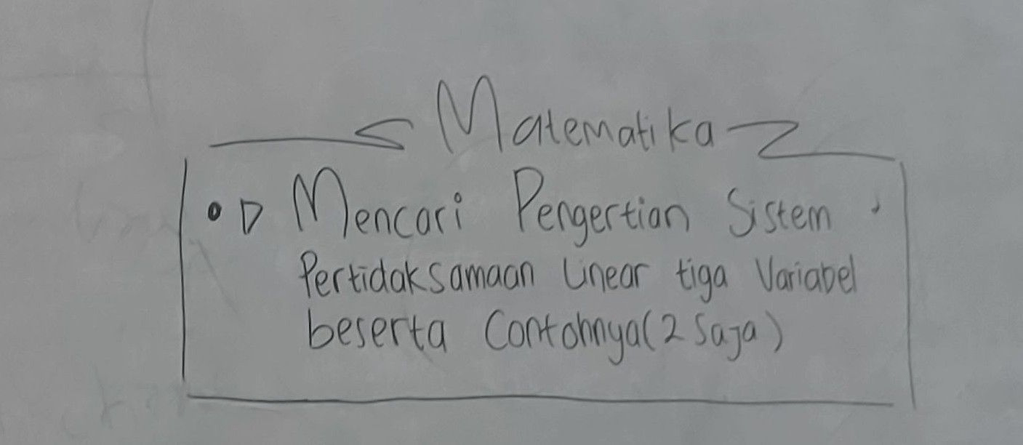 Matematika
• Mencari Pengertian Sistem
Pertidaksamaan linear tiga Variabel
beserta Contohnya (2 saja)